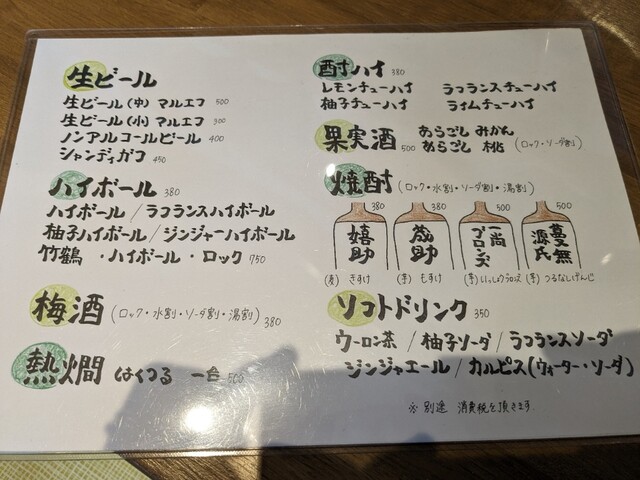 生ビール
生ビール(中) マルエフ 500
生ビール(小) マルエフ 300
ノンアルコールビール 400
シャンディガフ 450
ハイボール 380
ハイボール / ラフランスハイボール
柚子ハイボール / ジンジャーハイボール
竹鶴 ・ハイボール ・ロック 750
梅酒 (ロック・水割・ソーダ割・湯割) 380
熱燗 はくつる 一合 500
酎ハイ 380
レモンチューハイ ラフランスチューハイ
柚子チューハイ ライムチューハイ
果実酒 500 あらごし みかん
あらごし 桃 (ロック・ソーダ割)
焼酎 (ロック・水割・ソーダ割・湯割)
380 380 500 500
嬉助 茂助 一尚ブロンズ 蔓無源氏
(麦) きすけ (芋) もすけ (芋) いっしょうブロンズ (芋) つるなしげんじ
ソフトドリンク 350
ウーロン茶 / 柚子ソーダ / ラフランスソーダ
ジンジャエール / カルピス(ウォーター・ソーダ)
※ 別途 消費税を頂きます。